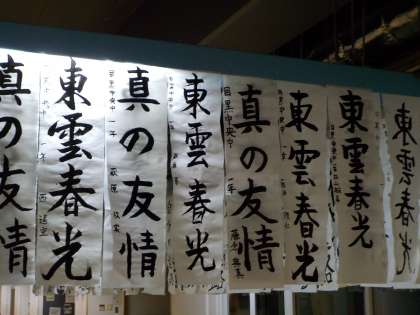 真の友情
東雲春光
真の友情
目黒中央中 一年
東雲春光
真の友情
目黒中央中 一年
東雲春光
東雲春光
東雲春光